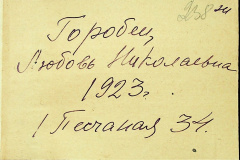 238
Горобец
Любовь Николаевна
1923г.
1 Песчаная 34.